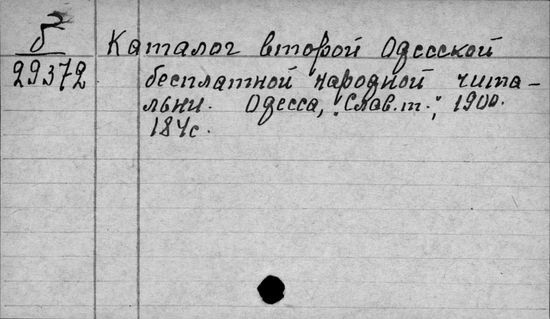 Каталог второй Одесской
29372 бесплатной народной чита-
льни. Одесса, "Слав.т.", 1900.
184с.